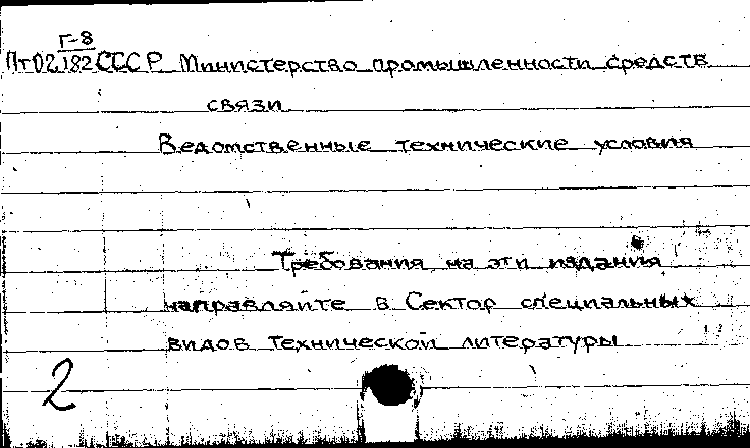 Г-8
Пт02182 СССР Министерство промышленности средств
связи
Ведомственные технические условия
Требования на эти издания
направляйте в Сектор специальных
видов технической литературы
2